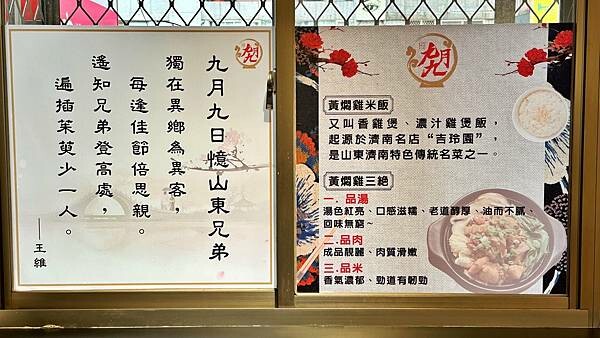 九月九日憶山東兄弟
獨在異鄉為異客，
每逢佳節倍思親。
遙知兄弟登高處，
遍插茱萸少一人。
——王維
九月
黃燜雞米飯
又叫香雞煲、濃汁雞煲飯，
起源於濟南名店“吉玲園”，
是山東濟南特色傳統名菜之一。
黃燜雞三絕
一.品湯
湯色紅亮、口感滋糯、老道醇厚、油而不膩、
回味無窮～
二.品肉
成品靚麗、肉質滑嫩
三.品米
香氣濃郁、勁道有韌勁